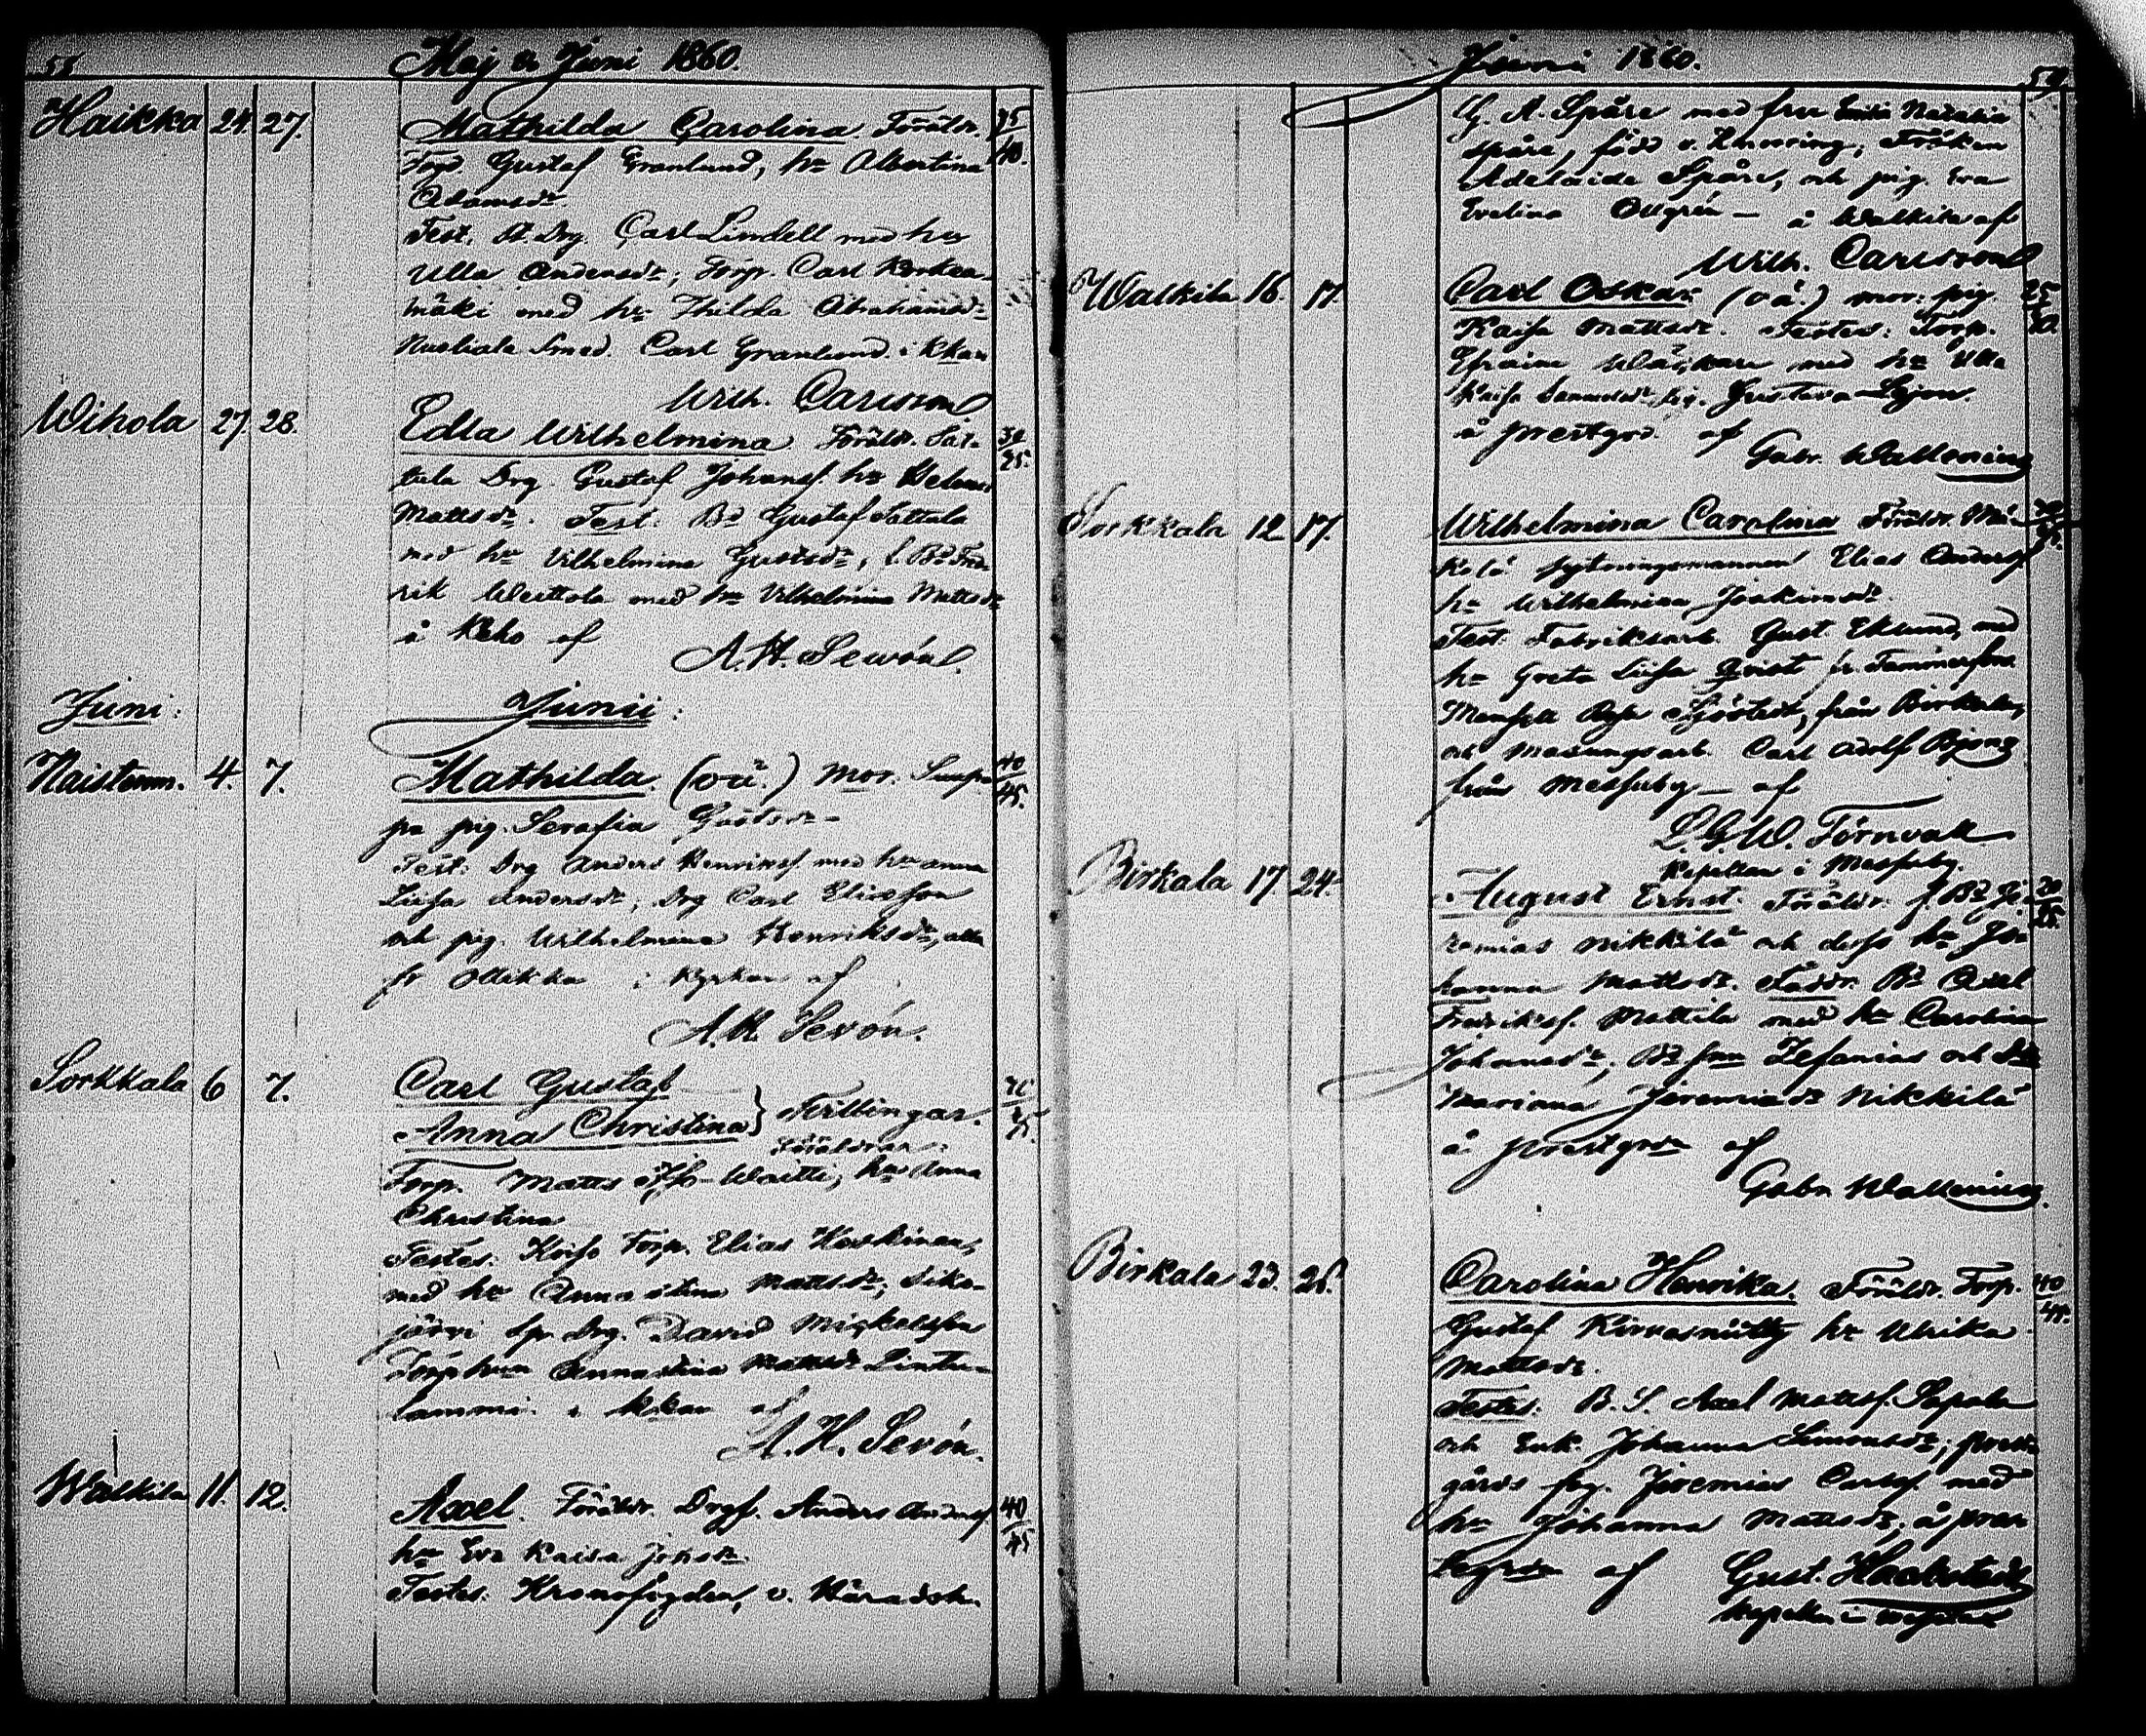 53
Maj & Juni 1860.
Haikka 24. 27. Mathilda Carolina. Föräldr. 35
Torp. Gustaf Granlund, hu Albertina 40.
Adamsdr.
Test: St. Drg. Carl Lindell med hu
Ulla Andersdr; Torp. Carl Korkea-
mäki med hu Thilda Abrahamsdr
Nuoliala Smed. Carl Granlund. i Kkan
Wilh. Carlsson
Wihola 27. 28. Edla Wilhelmina. Föräldr. Sat-
tula Drg. Gustaf Johansf. hu Helena 35.
Mattsdr. Test: Bd Gustaf Sattula
med hu Vilhelmina Gustsdr, f. Bd Fred-
rik Weittola med hu Vilhelmina Mattsdr
å Keho af
A. H. Sevón.
Juni: Junii:
Naistenm. 4. 7. Mathilda. (oä.) mor. 40
pig. Serafia Gustsdr 45.
Test: Drg Anders Henriksf. med hu Anna
Liisa Andersdr, Drg Carl Eliasson
och pig. Wilhelmina Henriksdr, alla
fr Ollikka i kyrkan af
A. H. Sevón.
Sorkkala 6 7. Carl Gustaf
Anna Christina } Tvillingar. 35.
Föräldrar:
Torp. Matts Waitti, hu Anna
Christina
Testes: Torp. Elias Haskinen,
med hu Anna Stina Mattsdr, Sika-
järvi Drg. David Mickelsson
Torp hun Anna Stina Mattsdr Lintu-
lammi. i kkan af
A. H. Sevón.
Walkila 11. 12. Axel. Föräldr. Drgf. Anders Andersf 40
hu Eva Kaisa Johsdr. 45
Testes: Kronofogden, v. Häradsh.
Juni 1860.
G. A. Spåre med fru Emili Natalia
Spåre, född v. Knorring, Fröken
Adelaide Spåre, och pig. Eva
Evelina Öllgrén — å Walkila af
Wilh. Carlsson
Walkila 16. 17. Carl Oskar (oä.) mor: pig. 25
Kaisa Mattsdr. Testes: Torp. 30.
Efraim med hu Ulla
Kaisa Samuelsdr, pig. Gustava Lejon
å prestgrd. af
Gabr. Wallenius
Sorkkala 12 17. Wilhelmina Carolina Föräldr. Mä-
kelä sytningsmannen Elias Andersf 35.
hu Wilhelmina Joakimsdr.
Test: Fabriksarb. Gust. Eklund, med
hu Greta Liisa Qvist fr. Tammerfors
Mamsell Rosa från Birkala,
och masungsarb. Carl Adolf Björng
från Messuby — af
L. G. W. Törnvall
Kapellan i Messuby.
Birkala 17 24. August Ernst. Föräldr. f. Bd Je-
remias Nikkilä och dess hu Jo- 35.
hanna Mattsdr. Faddr. Bd Axel
Fredriksf. Mattila med hu Carolina
Johansdr; Bd son Zefanias och dr
Mariana Jeremiasdr Nikkilä
å prestgrdn af
Gabr. Wallenius.
Birkala 23. 25. Carolina Henrika. Föräldr. Torp. 40
Gustaf Kirvasniitty hu Ulrika 45.
Mattsdr.
Testes: B. S. Axel Mattsf. Sapala
och Enk. Johanna Simonsdr; prest-
gårds fog. Jeremias Carlsf. med
hu Johanna Mattsdr, å pres-
tgrdn af Gust. Haahnstedt
Kapellan i